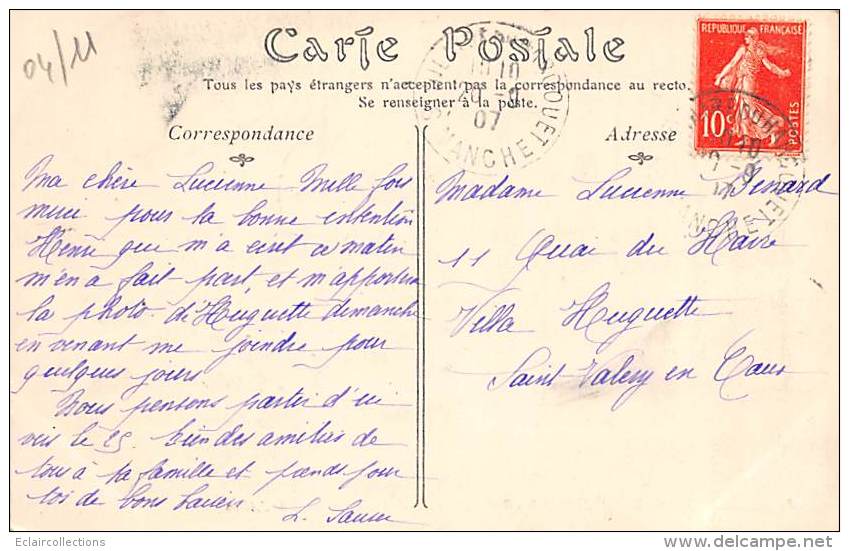 04/11
Carte Postale
Tous les pays étrangers n'acceptent pas la correspondance au recto.
Se renseigner à la poste.
Correspondance
Adresse
REPUBLIQUE FRANÇAISE
10c
POSTES
07
MANCHE
Ma chère Lucienne Mille fois
merci pour ta bonne intention
Henri que m'a écrit ce matin
m'en a fait part, et m'apportera
la photo d'Huguette dimanche
en venant me joindre pour
quelques jours
Nous pensons partir d'ici
vers le 25. bien des amitiés de
tous à ta famille et prends pour
toi de bons baisers
L.
Madame Lucienne
11 Quai du Havre
Villa Huguette
Saint Valery en Caux
Eclaircollections
www.delcampe.net